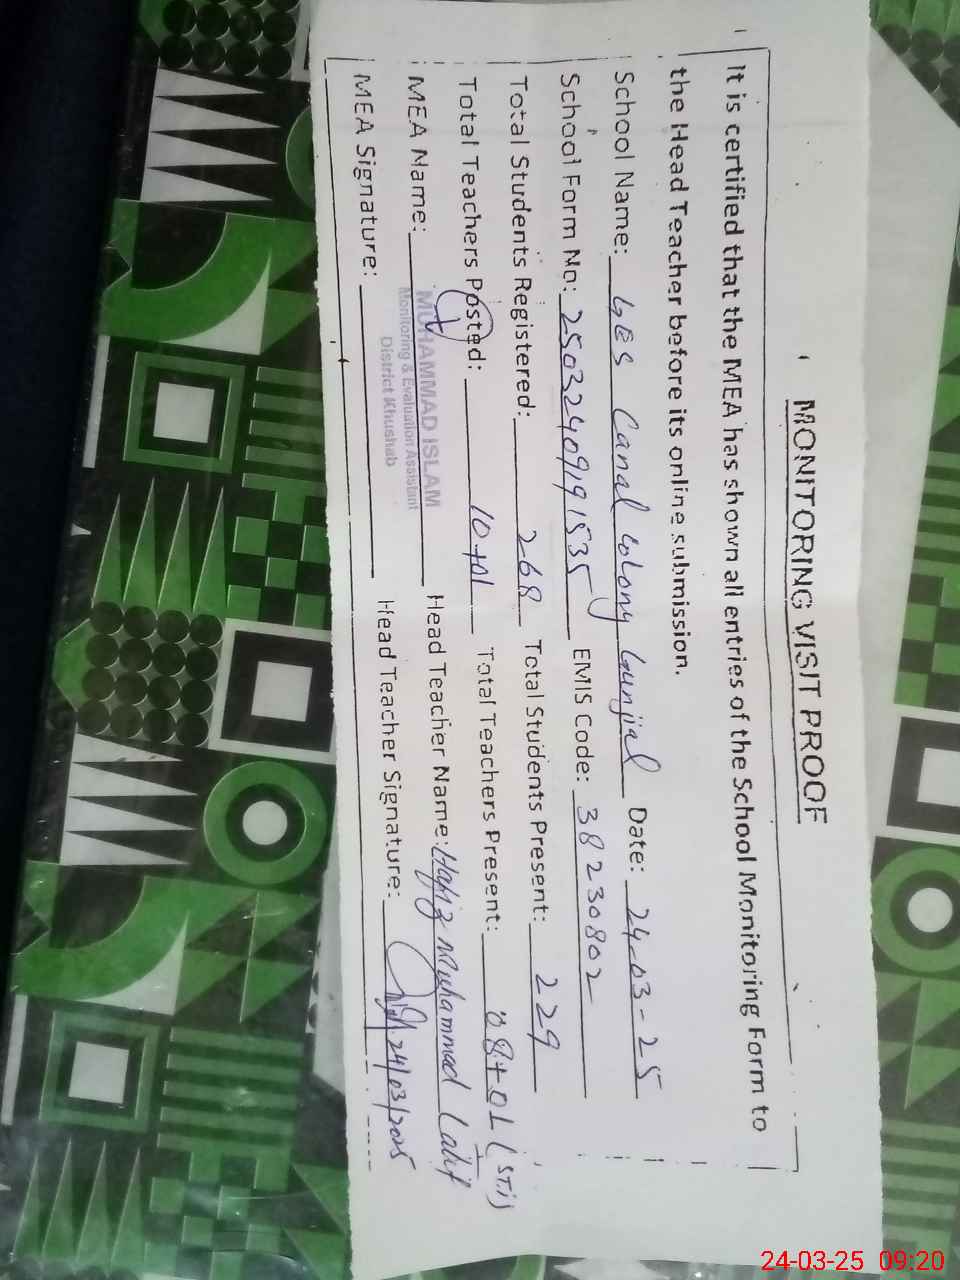 MONITORING VISIT PROOF
It is certified that the MEA has shown all entries of the School Monitoring Form to
the Head Teacher before its online submission.
School Name: GES Canal Colony Gunjial Date: 24-03-25
School Form No: 25032409191535 EMIS Code: 38230802
Total Students Registered: 268 Total Students Present: 229
Total Teachers Posted: 10+01 Total Teachers Present: 08+01 (STI)
MEA Name: MUHAMMAD ISLAM Head Teacher Name: Hafiz Muhammad Latif
Monitoring & Evaluation Assistant
District Khushab
MEA Signature: Head Teacher Signature: 24/03/2025
24-03-25 09:20